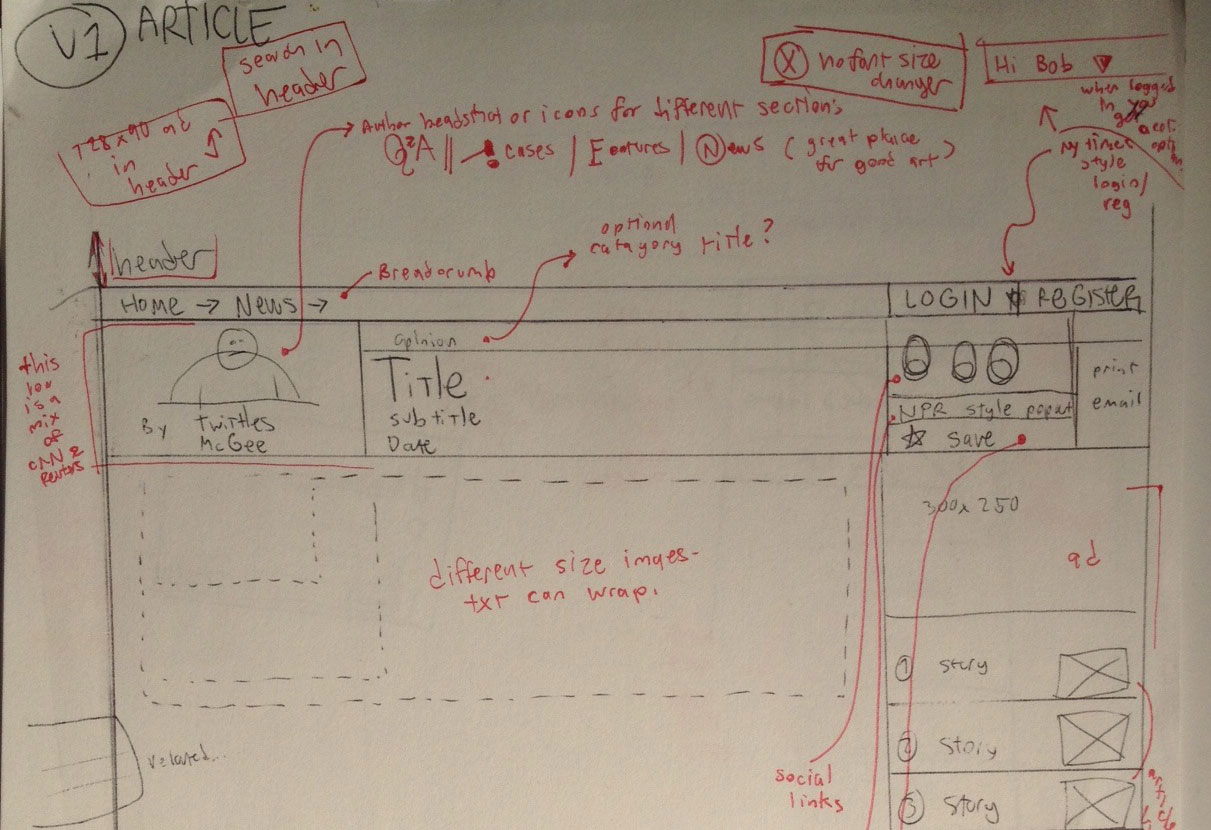 V1 ARTICLE
search in
header
728x90 ad
in
header
X no font size
changer
Hi Bob
when logged
in
Author headshot or icons for different section's
Q²A || ! cases | Features | News (great place
for good art)
ny times
style
login/
reg
optional
catagory title?
header
Breadcrumb
Home → News →
LOGIN REGISTER
this
row
is a
mix
of
CNN &
Reuters
opinion
Title
subtitle
Date
By Twittles
McGee
NPR style popout
☆ save
print
email
300x250
ad
different size images-
txt can wrap.
① story
② story
③ story
related...
social
links